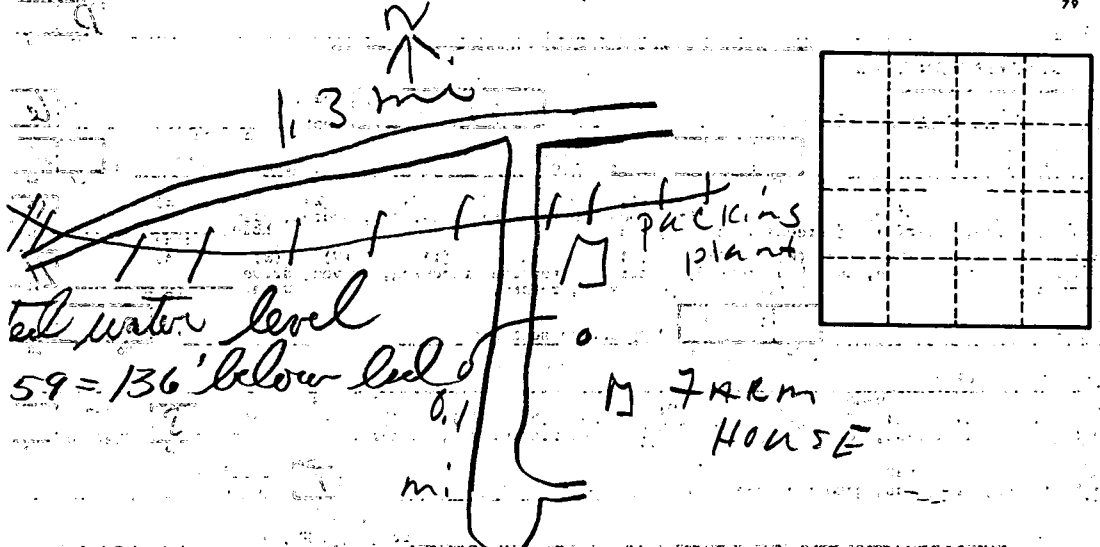 79
N
1.3 mi
packing
plant
water level
59 = 136' below
0.1
mi
FARM
HOUSE